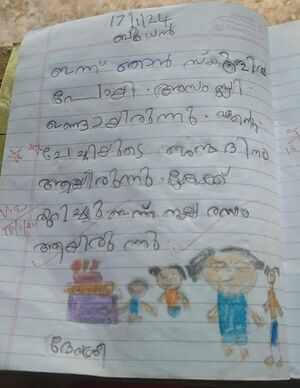 17/1/24
ബുധൻ
ഇന്ന് ഞാൻ സ്കൂളിൽ
പോയി. അസംബ്ലി
ഉണ്ടായിരുന്നു. എന്റെ
ചേച്ചിയുടെ ജന്മദിനം
ആയിരുന്നു. കേക്ക്
മുറിച്ചു. ഇന്ന് നല്ല രസം
ആയിരുന്നു
18/1/24